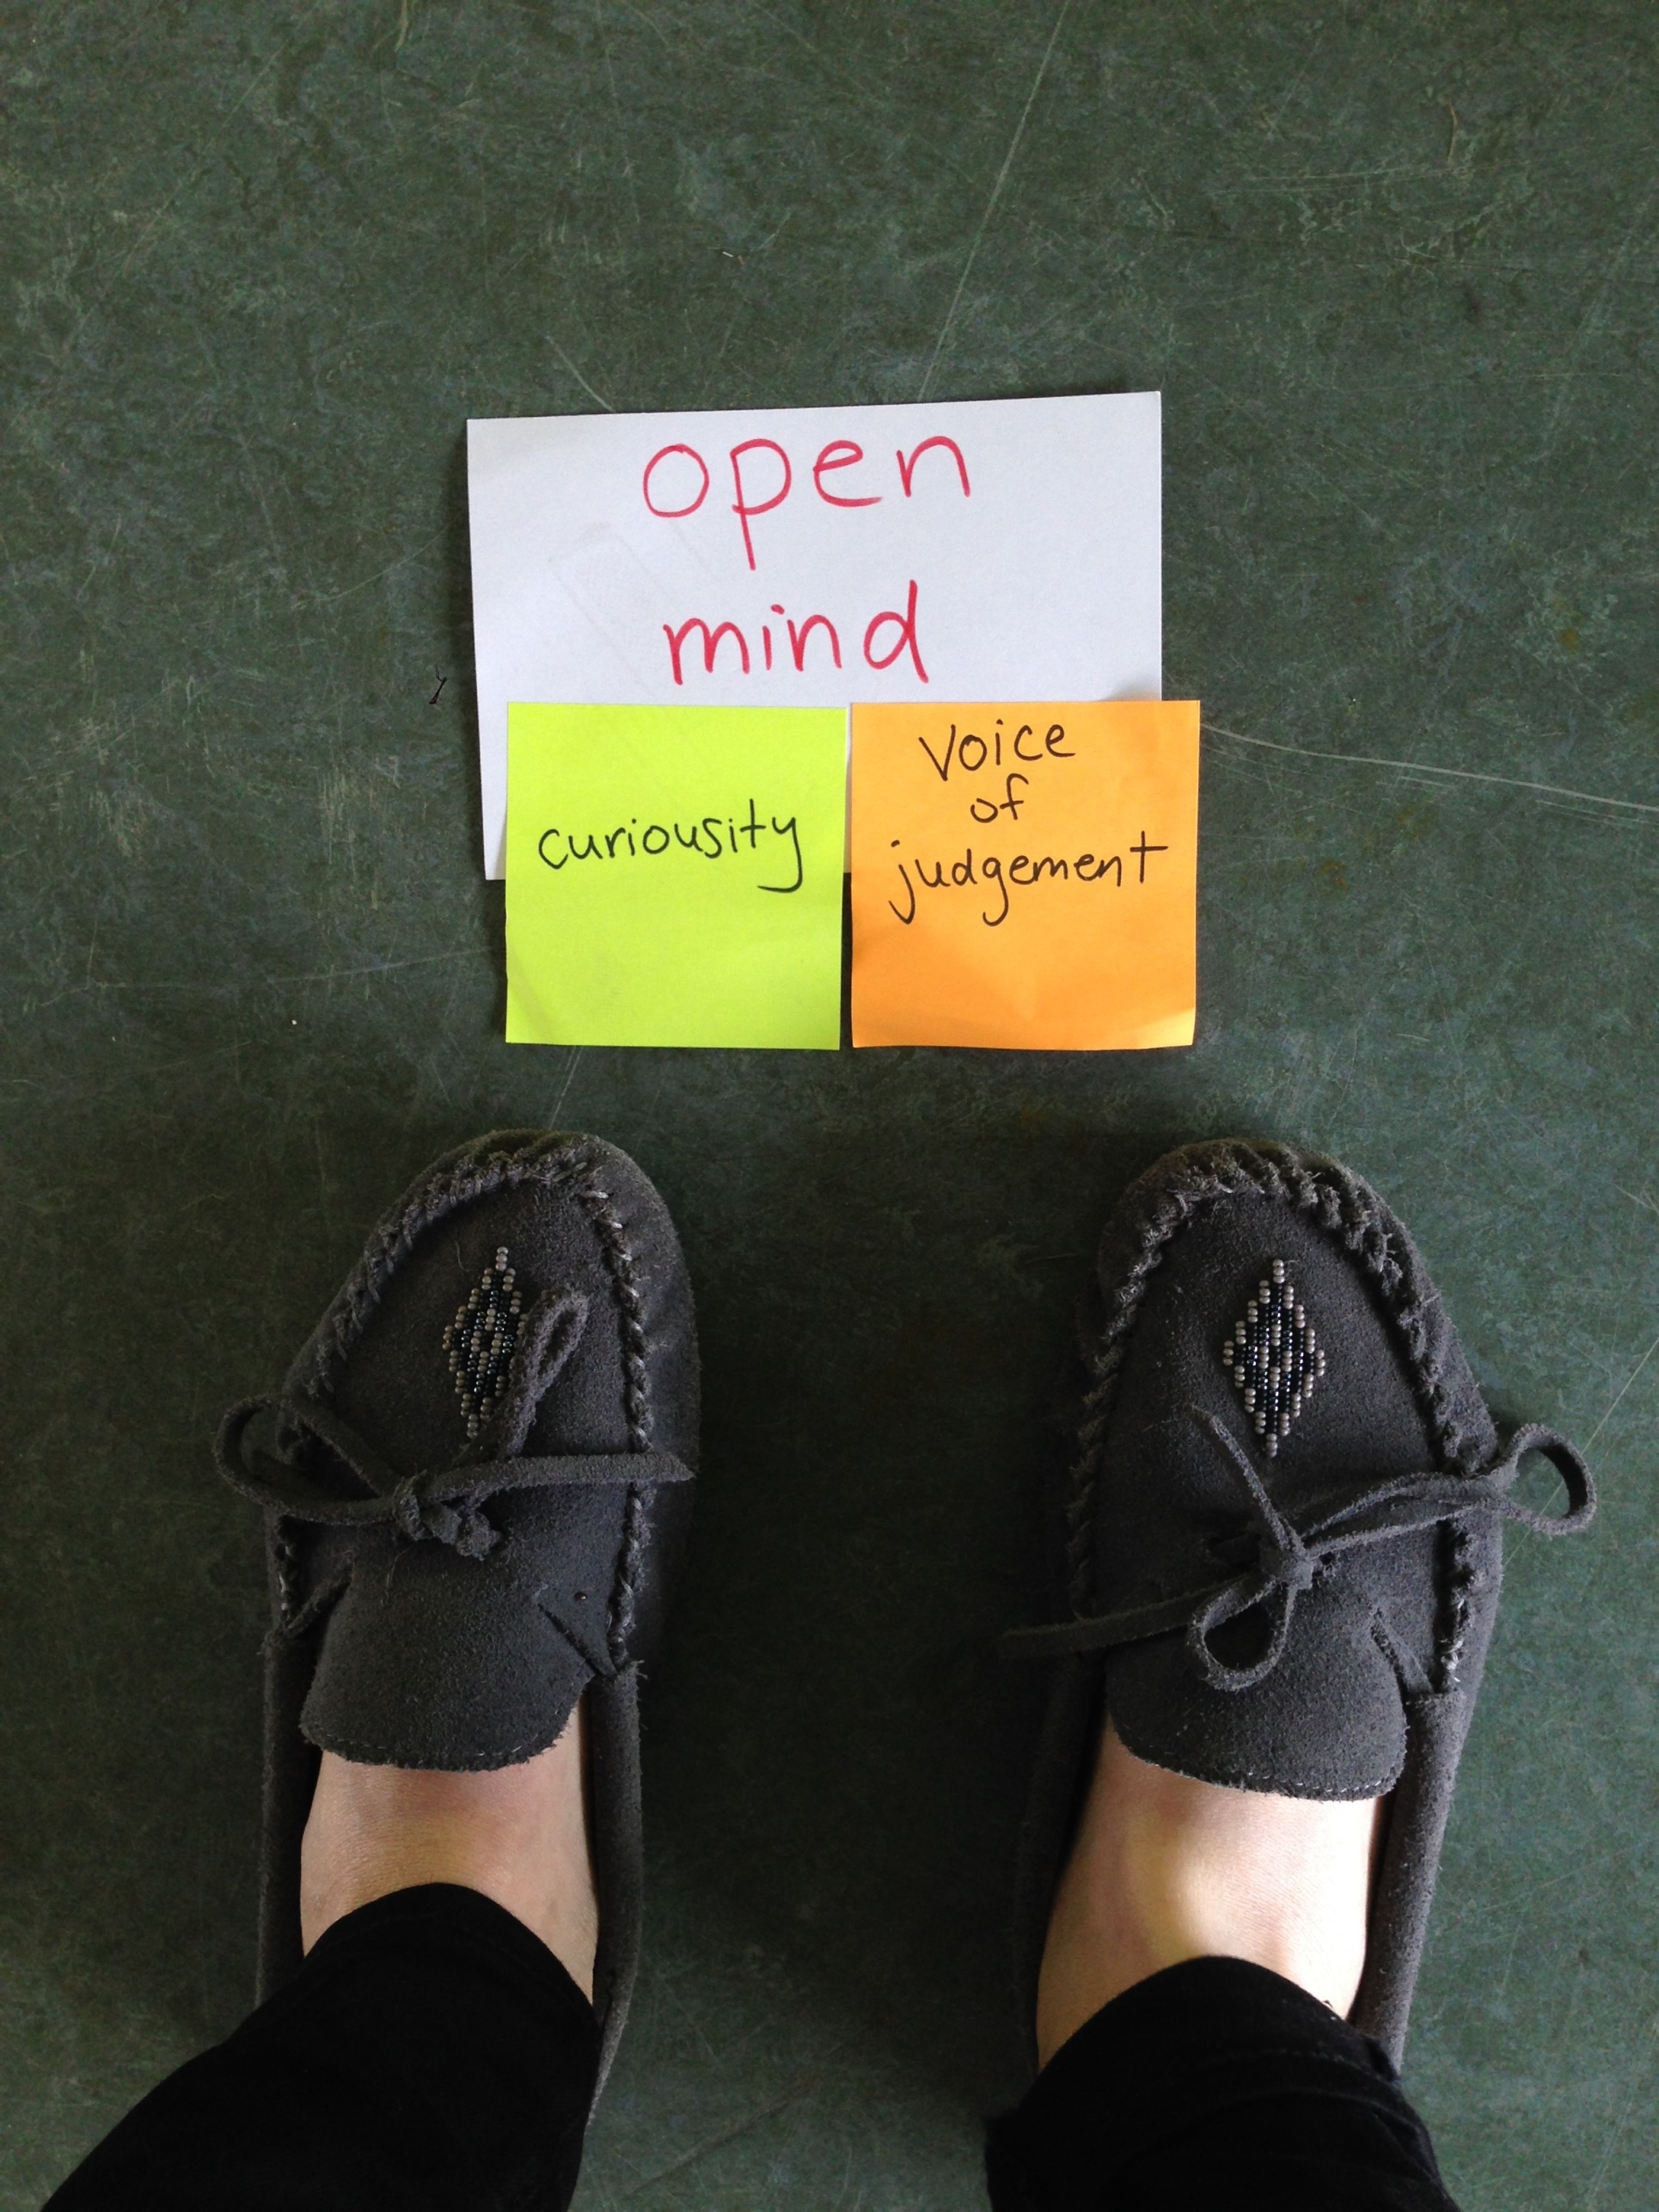 open
mind
curiousity
Voice
of
judgement